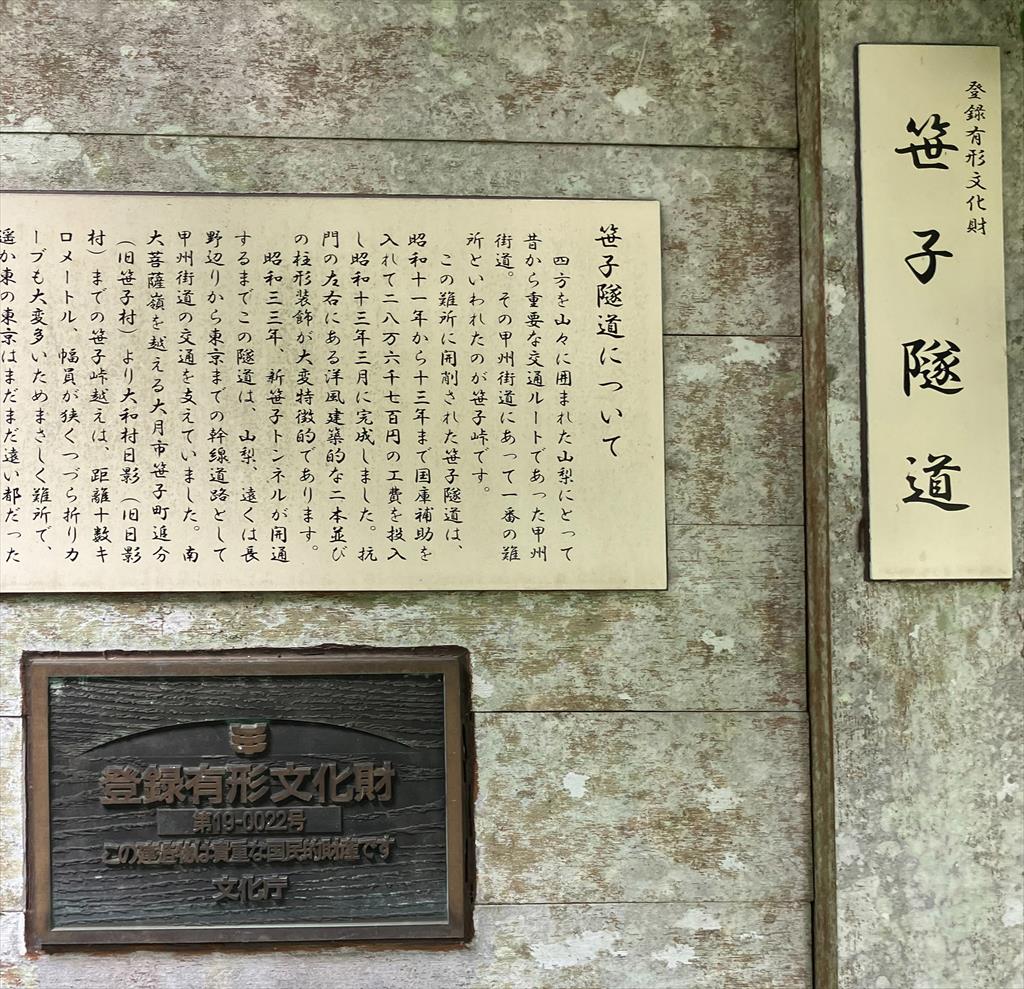 登録有形文化財
笹子隧道
笹子隧道について
四方を山々に囲まれた山梨にとって
昔から重要な交通ルートであった甲州
街道。その甲州街道にあって一番の難
所といわれたのが笹子峠です。
この難所に開削された笹子隧道は、
昭和十一年から十三年まで国庫補助を
入れて二八万六千七百円の工費を投入
し昭和十三年三月に完成しました。抗
門の左右にある洋風建築的な二本並び
の柱形装飾が大変特徴的であります。
昭和三三年、新笹子トンネルが開通
するまでこの隧道は、山梨、遠くは長
野辺りから東京までの幹線道路として
甲州街道の交通を支えていました。南
大菩薩嶺を越える大月市笹子町追分
（旧笹子村）より大和村日影（旧日影
村）までの笹子峠越えは、距離十数キ
ロメートル、幅員が狭くつづら折りカ
ーブも大変多いためまさしく難所で、
遥か東の東京はまだまだ遠い都だった
登録有形文化財
第19-0022号
この建造物は貴重な国民的財産です
文化庁